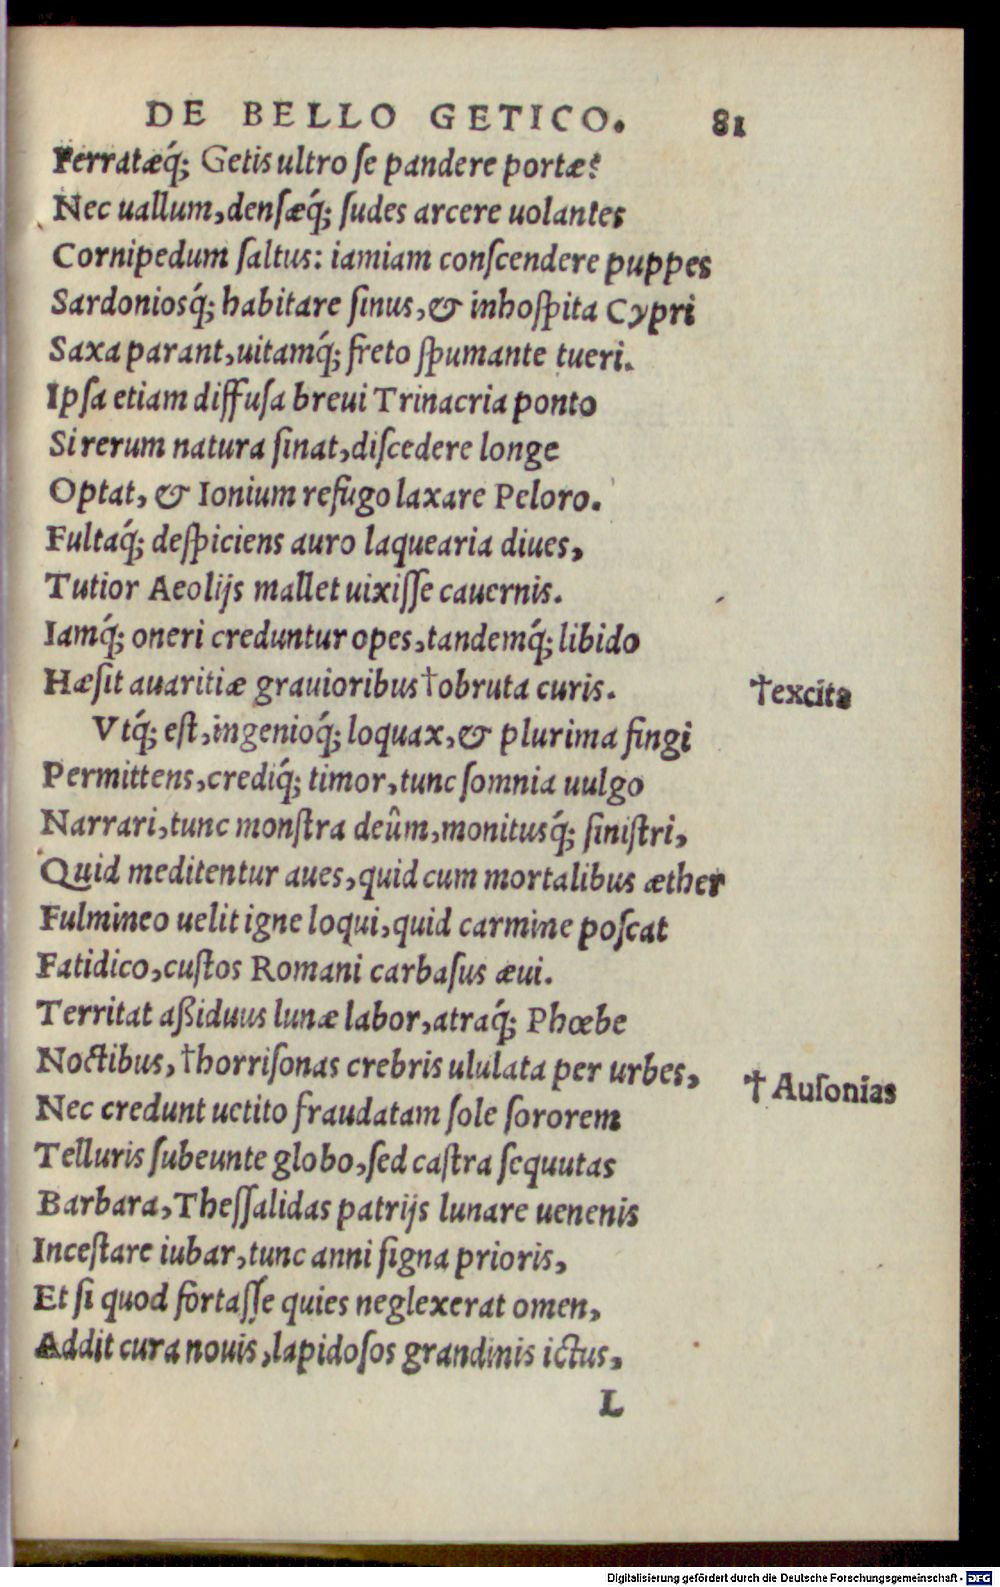 DE BELLO GETICO. 81
Ferratæq́; Getis ultro se pandere portæ?
Nec uallum, densæq́; sudes arcere uolantes
Cornipedum saltus: iamiam conscendere puppes
Sardoniosq́; habitare sinus, & inhospita Cypri
Saxa parant, uitamq́; freto spumante tueri.
Ipsa etiam diffusa breui Trinacria ponto
Si rerum natura sinat, discedere longe
Optat, & Ionium refugo laxare Peloro.
Fultaq́; despiciens auro laquearia diues,
Tutior Aeolijs mallet uixisse cauernis.
Iamq́; oneri creduntur opes, tandemq́; libido
Hæsit auaritiæ grauioribus †obruta curis. †excita
Vtq́; est, ingenioq́; loquax, & plurima fingi
Permittens, crediq́; timor, tunc somnia uulgo
Narrari, tunc monstra deûm, monitusq́; sinistri,
Quid meditentur aues, quid cum mortalibus æther
Fulmineo uelit igne loqui, quid carmine poscat
Fatidico, custos Romani carbasus æui.
Territat aßiduus lunæ labor, atraq́; Phœbe
Noctibus, †horrisonas crebris ululata per urbes, † Ausonias
Nec credunt uetito fraudatam sole sororem
Telluris subeunte globo, sed castra sequutas
Barbara, Thessalidas patrijs lunare uenenis
Incestare iubar, tunc anni signa prioris,
Et si quod fortasse quies neglexerat omen,
Addit cura nouis, lapidosos grandinis ictus,
L
Digitalisierung gefördert durch die Deutsche Forschungsgemeinschaft - DFG